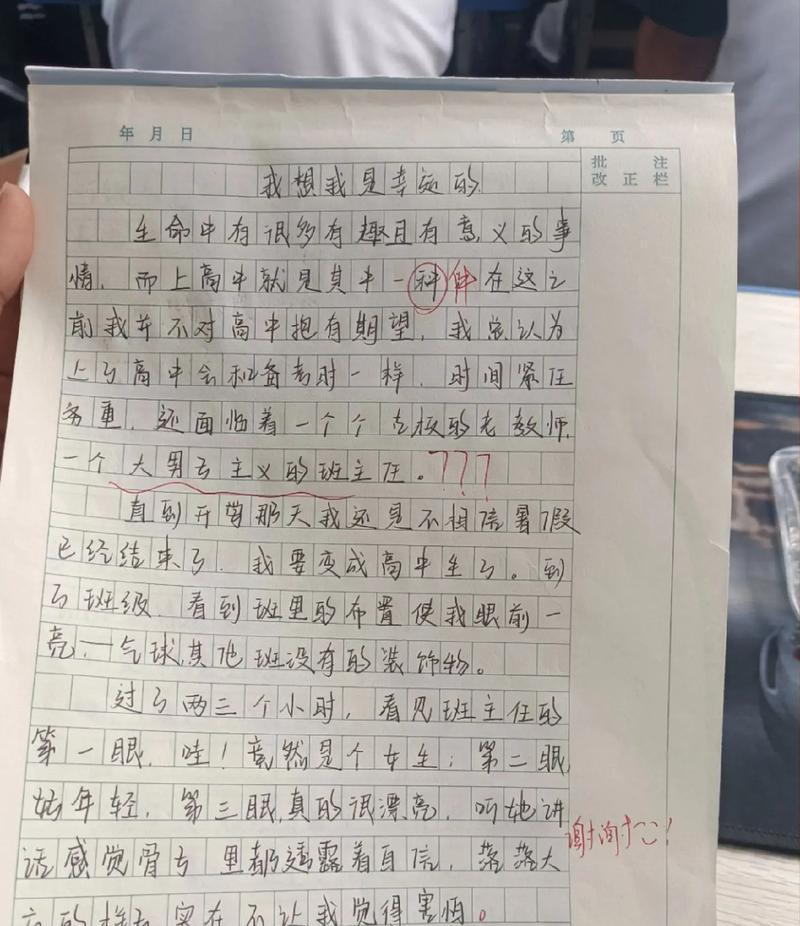 年 月 日
第 页
批 注
改 正 栏
我想我是幸运的
生命中有很多有趣且有意义的事
情,而上高中就是其中一种件在这之
前我并不对高中抱有期望,我总认为
上了高中会和备考时一样,时间紧任
务重,还面临着一个个古板的老教师,
一个大男子主义的班主任。???
直到开学那天我还是不相信暑假
已经结束了,我要变成高中生了。到
了班级,看到班里的布置使我眼前一
亮,一气球,其他班没有的装饰物。
过了两三个小时,看见班主任的
第一眼,哇!竟然是个女生;第二眼,
好年轻,第三眼,真的很漂亮,听她讲
谢谢
话感觉骨子里都透露着自信,落落大
方的样子实在不让我觉得害怕。